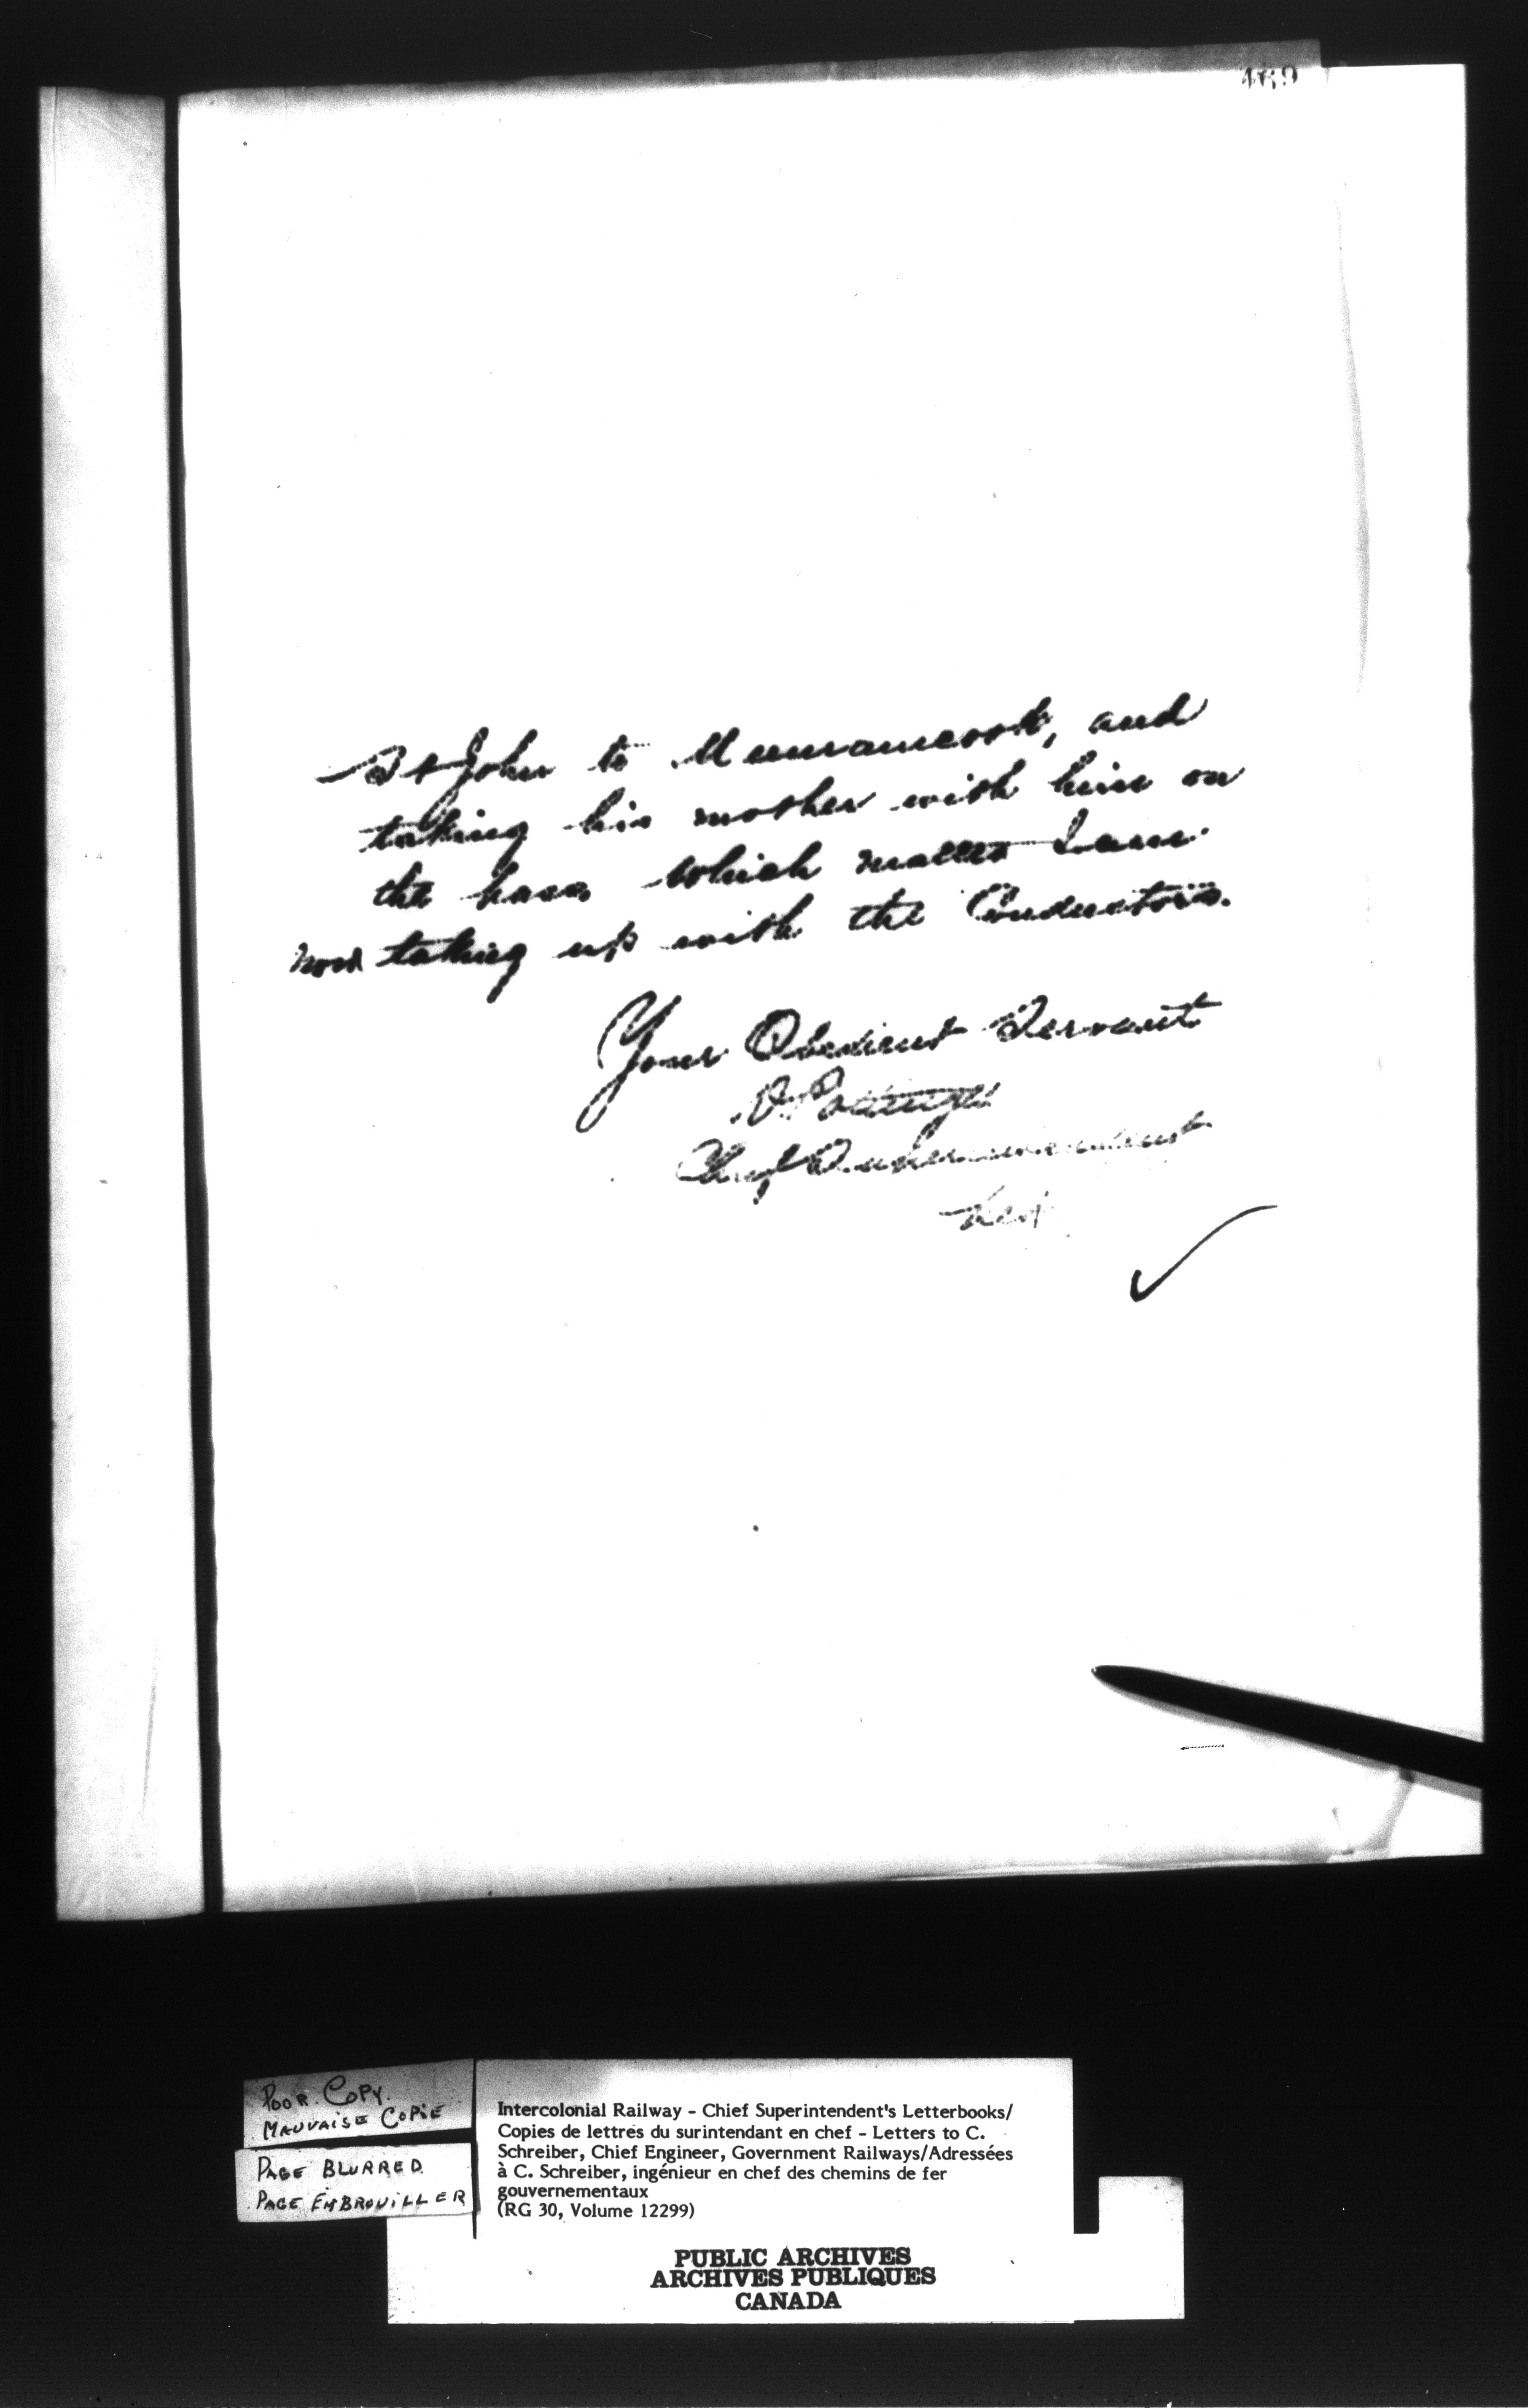 469
St John to Memramcook, and
taking his mother with him on
the pass which matter I am
now taking up with the Conductors.
Your Obedient Servant
D Pottinger
Chief Superintendent
POOR COPY.
MAUVAISE COPIE
PAGE BLURRED
PAGE EMBROUILLER
Intercolonial Railway - Chief Superintendent's Letterbooks/
Copies de lettres du surintendant en chef - Letters to C.
Schreiber, Chief Engineer, Government Railways/Adressées
à C. Schreiber, ingénieur en chef des chemins de fer
gouvernementaux
(RG 30, Volume 12299)
PUBLIC ARCHIVES
ARCHIVES PUBLIQUES
CANADA